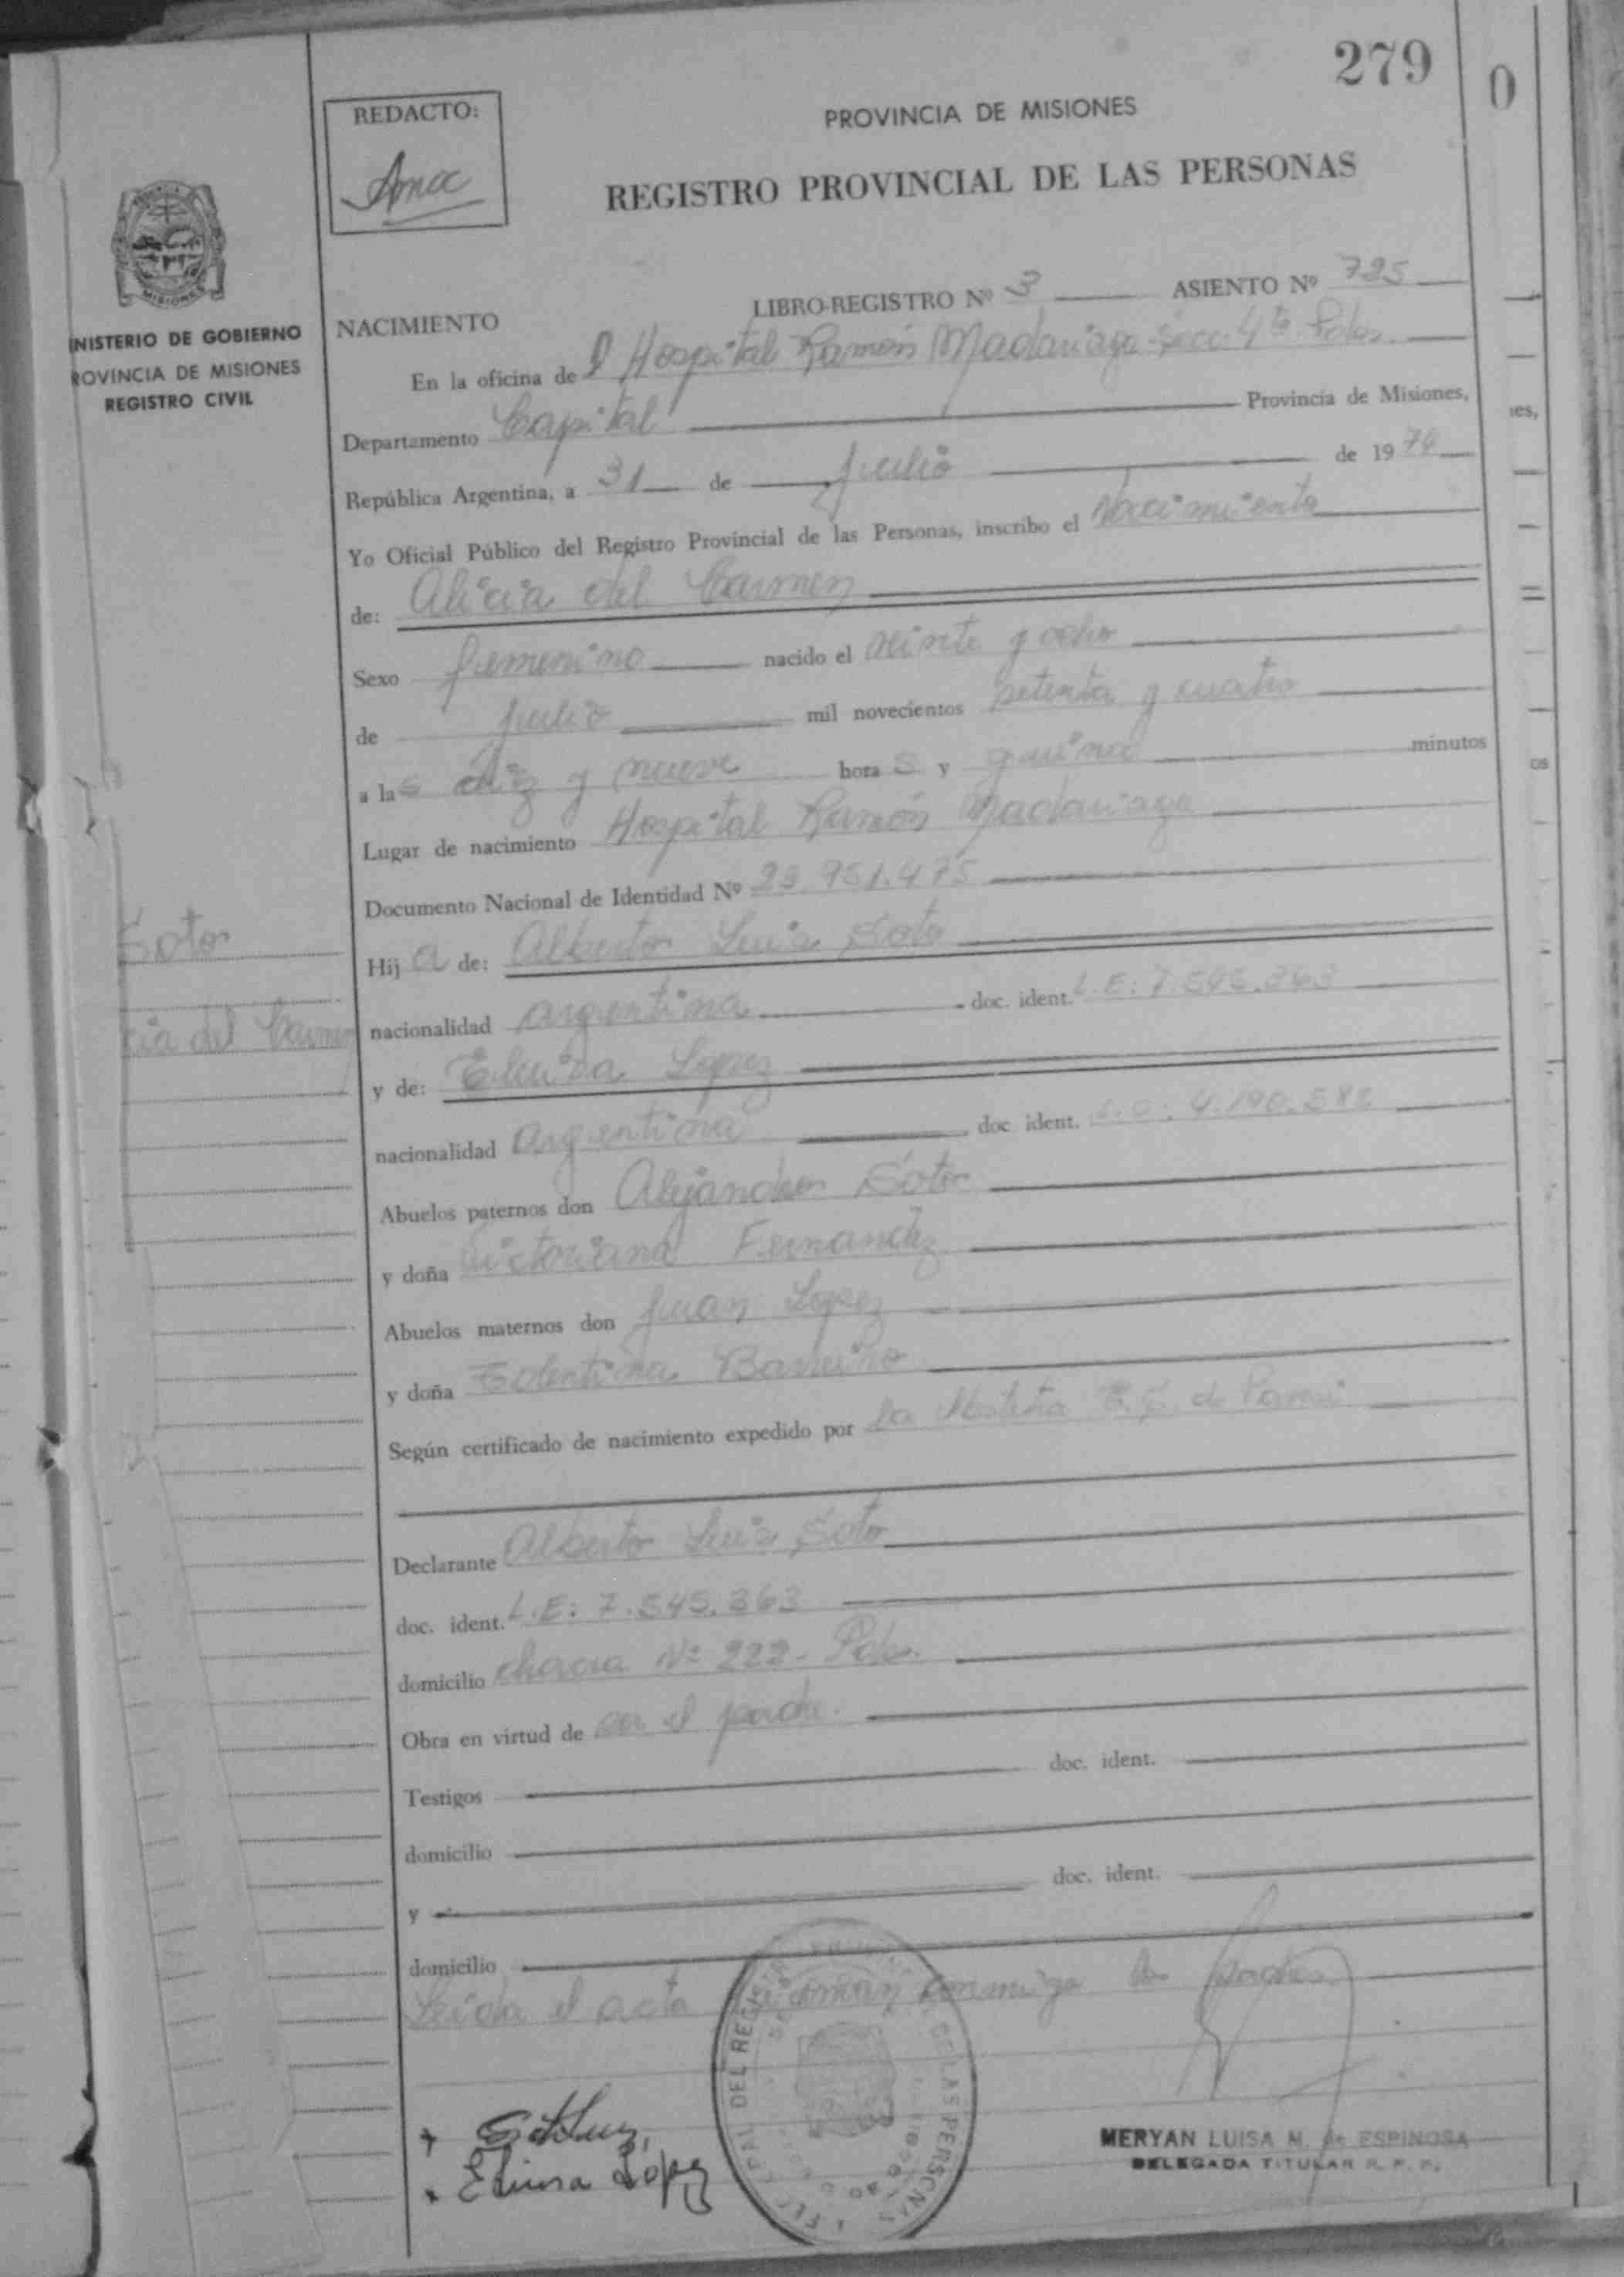 279
0
REDACTO:
Ana
PROVINCIA DE MISIONES
REGISTRO PROVINCIAL DE LAS PERSONAS
MISIONES
INISTERIO DE GOBIERNO
ROVINCIA DE MISIONES
REGISTRO CIVIL
NACIMIENTO
LIBRO-REGISTRO Nº 3 ASIENTO Nº 725
En la oficina de l Hospital Ramón Madariaga Secc. 4ta Pdas.
Departamento Capital Provincia de Misiones,
ies,
República Argentina, a 31 de julio de 1974
Yo Oficial Público del Registro Provincial de las Personas, inscribo el Nacimiento
de: Alicia del Carmen
Sexo femenino nacido el veinte y ocho
de julio mil novecientos setenta y cuatro
a las diez y nueve horas y quince minutos
os
Lugar de nacimiento Hospital Ramón Madariaga
Documento Nacional de Identidad Nº 23.951.475
Soto
Hija de: Alberto Luis Soto
nacionalidad argentina doc. ident. L.E: 7.545.363
cia del Carmen
y de: Elvira Lopez
nacionalidad argentina doc. ident. L.C: 4.190.582
Abuelos paternos don Alejandro Soto
y doña Victoriana Fernandez
Abuelos maternos don Juan Lopez
y doña Tolentina Barreiro
Según certificado de nacimiento expedido por La de
Declarante Alberto Luis Soto
doc. ident. L.E: 7.545.363
domicilio chacra Nº 222 - Pdas.
Obra en virtud de ser el padre.
Testigos doc. ident.
domicilio
y doc. ident.
domicilio
Leida el acta la firman conmigo los padres
Elvira López
MERYAN LUISA M. de ESPINOSA
DELEGADA TITULAR R. P. P.
DEL REGISTRO DE LAS PERSONAS